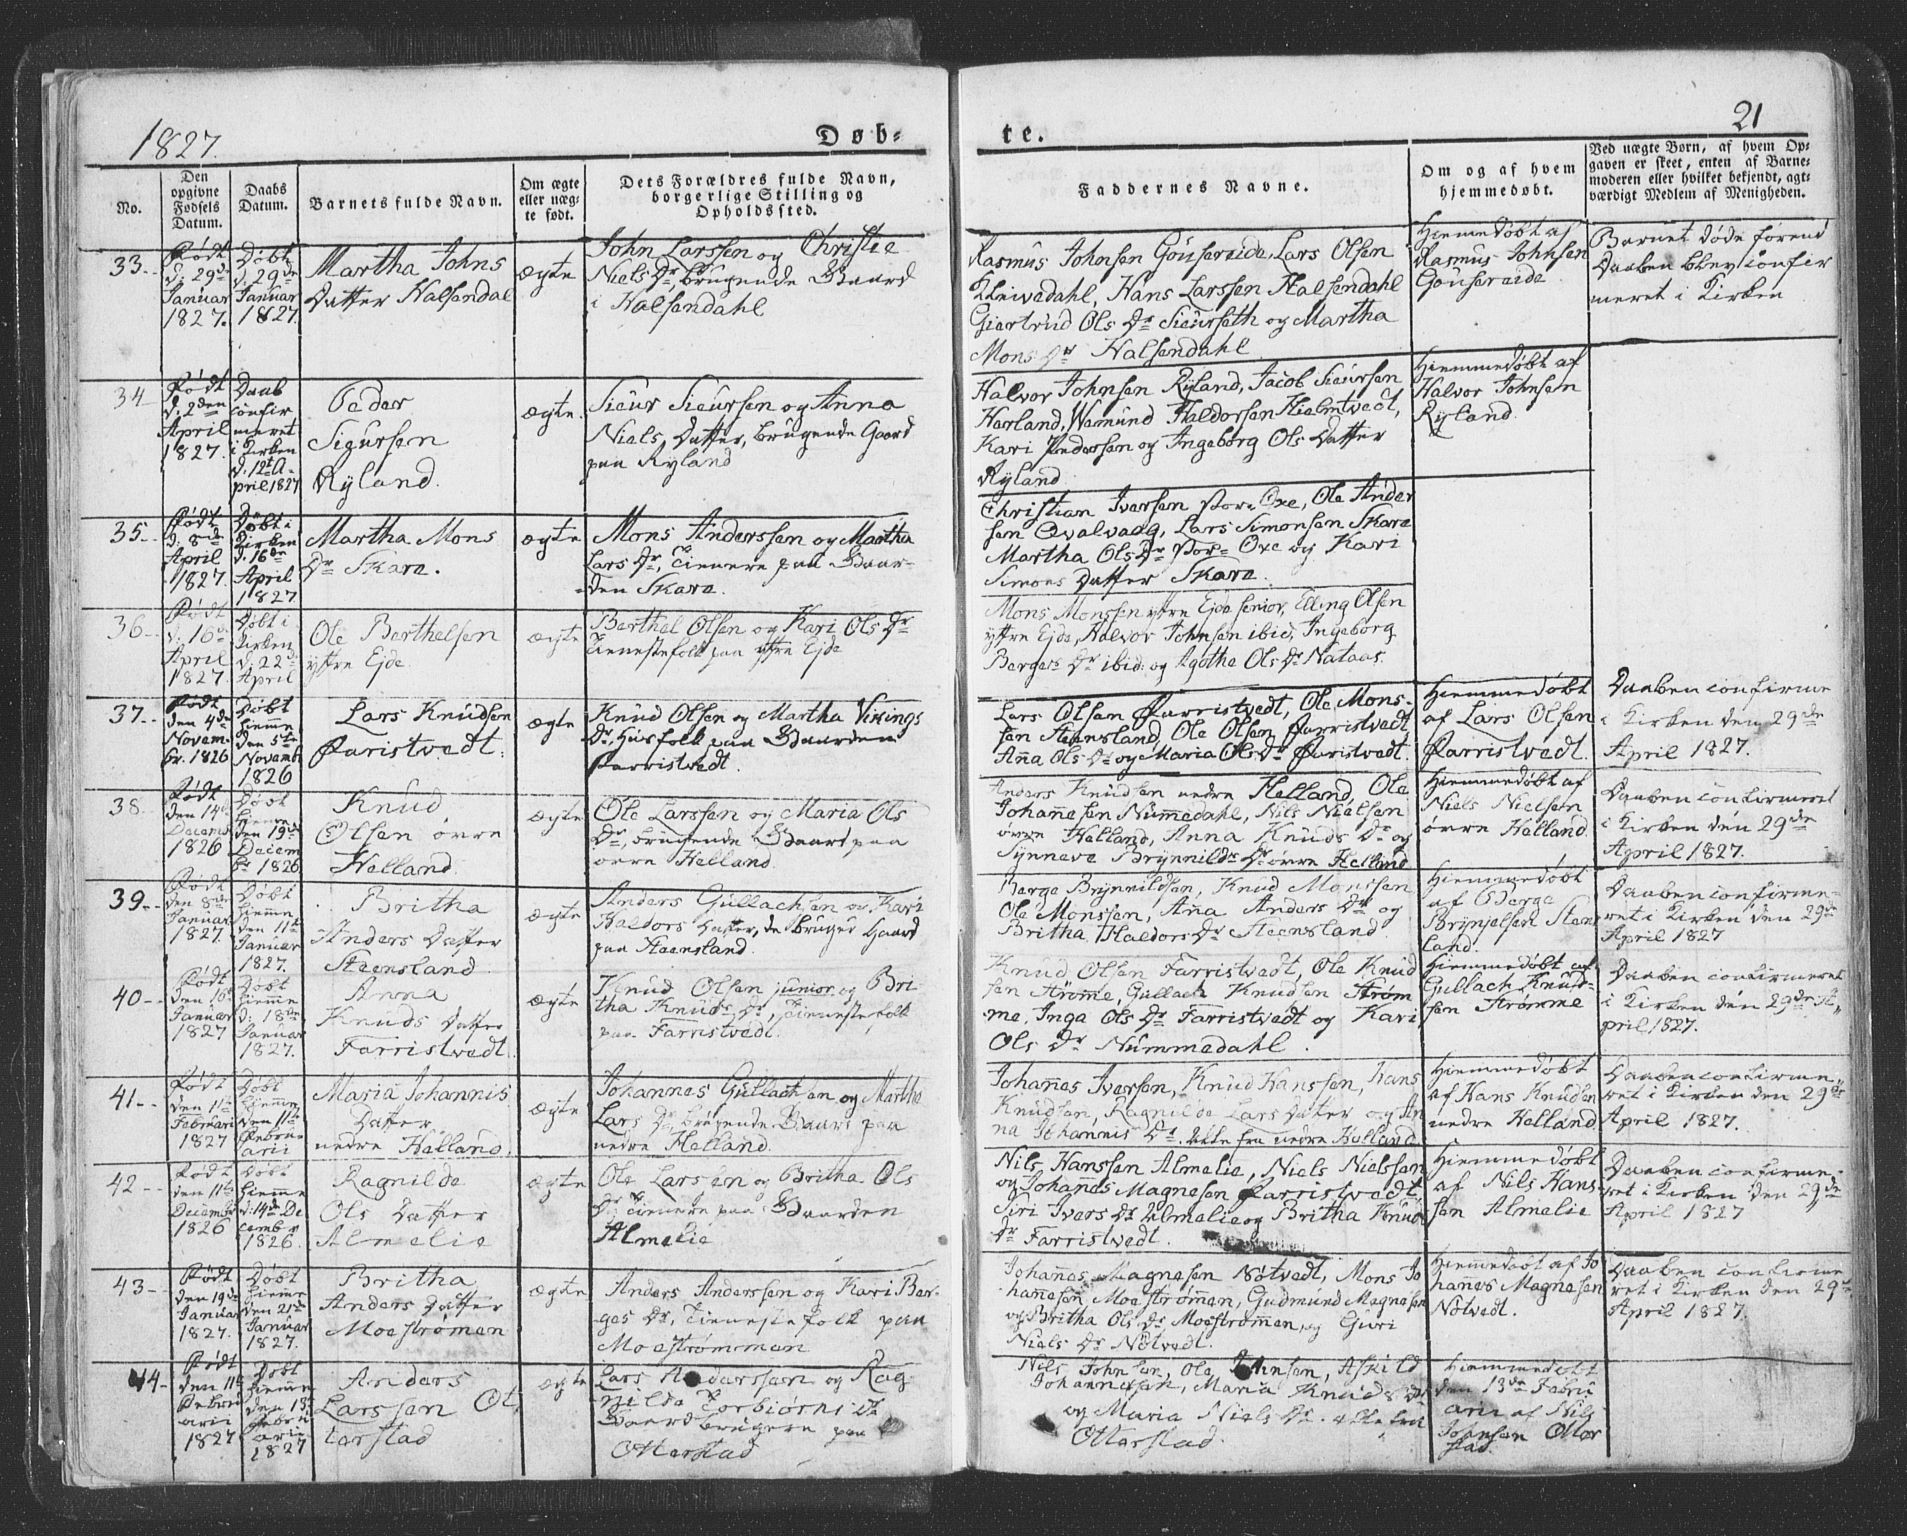 1827.
Døb-
te.
21
No.
Den opgivne Fødsels Datum.
Daabs Datum.
Barnets fulde Navn.
Om ægte eller uægte født.
Dets Forældres fulde Navn, borgerlige Stilling og Opholdssted.
Faddernes Navne.
Om og af hvem hjemmedøbt.
Ved uægte Børn, af hvem Opgaven er skeet, enten af Barnemoderen eller hvilket bekjendt, agtværdigt Medlem af Menigheden.
33.
Født
d: 29de
Januar
1827.
Døbt
d. 29de
Januar
1827.
Martha Johns
Datter Halsendal
ægte
John Larssen og Christie
Niels Dr, brugende Gaard
i Halsendahl
Rasmus Johnsen Gousereide, Lars Olsen
Kleivedahl, Hans Larssen Halsendahl
Giertrud Ols Dr Sieurseth og Martha
Mons Dr Halsendahl
Hiemedøbt af
Rasmus Johnsen
Gousereide
Barnet døde forend
Daaben blev confir
meret i Kirken
34
Født
d: 2den
April
1827.
Daab
confir
meret
i Kirken
d. 12t A-
pril 1827
Peder
Sigursen
Ryland.
ægte
Sieur Sieursen og Anna
Niels Datter, brugende Gaard
paa Ryland
Halvor Johnsen Ryland, Jacob Sieursen
Harland, Wamund Haldorsen Hielmtvedt,
Kari Pederssen og Ingeborg Ols Datter
Ryland
Hiemmedøbt af
Halvor Johnsen
Ryland
35.
Født
d: 8de
April
1827.
Døbt i
Kirken
d. 16de
April
1827
Martha Mons
Dr Skare.
ægte
Mons Anderssen og Martha
Lars Dr, Tienere paa Gaar-
den Skare.
Christian Iversen Oxe, Ole Ander
sen Qvalvaag, Lars Simonsen Skare
Martha Ols Dr Oxe og Kari
Simons Datter Skare.
36
Født
d: 16de
April
1827.
Døbt i
Kirken
d: 22de
April
Ole Berthelsen
yttre Ejde
ægte
Berthel Olsen og Kari Ols Dr
Tienestefolk paa yttre Ejde
Mons Monssen yttre Ejde senior, Elling Olsen
yttre Ejde, Halvor Johnsen ibid, Ingeborg
Berges Dr ibid: og Agothe Ols Dr Nataas.
37.
Født
den 4de
Novem-
br. 1826
Døbt
hiemme
den 5te
Novemb
1826
Lars Knudsen
Faristvedt.
ægte
Knud Olsen og Martha Vikings
Dr, Husfolk paa Gaarden
Farristvedt.
Lars Olsen Farristvedt, Ole Mons-
sen Steensland, Ole Olsen Farristvedt
Anna Ols Dr og Maria Ols Dr Faristvedt.
Hiemmedøbt
af Lars Olsen
Farristvedt.
Daaben confirme
i Kirken den 29de
April 1827.
38.
Født
den 14de
Decemb
1826
Døbt
hieme
den 19de
Decem
br 1826
Knud
Olsen øvre
Helland.
ægte
Ole Larssen og Maria Ols
Dr, brugende Gaard paa
øvre Helland.
Anders Knudsen nedre Helland, Ole
Johannesen Nummedahl, Nils Nielsen
øvre Helland, Anna Knuds Dr og
Synneve Brynnilds Dr øvre Helland
Hiemmedøbt af
Niels Nielsen
øvre Helland
Daaben confirmeret
i Kirken den 29de
April 1827.
39.
Født
den 8de
Januar
1827.
Døbt
hiemme
den 11te
Januar
1827.
Britha
Anders Datter
Steensland.
ægte
Anders Gullachsen og Kari
Haldors Datter, de bruger Gaard
paa Steensland.
Berge Brynnildsen, Knud Monssen
Ole Monssen, Anna Anders Dr og
Britha Haldors Dr Steensland
Hiemmedøbt
af Berge
Brynjelsen Stens
land.
Daaben confirme-
ret i Kirken den 29de
April 1827
40
Født
den 16de
Januar
1827
Døbt
hiemme
d: 18de
Januar
1827.
Anna
Knuds Datter
Farristvedt.
ægte
Knud Olsen junior og Bri
tha Knuds Dr, Tienestefolk
paa Farristvedt.
Knud Olsen Farristvedt, Ole Knud
sen Strøme, Gullach Knudsen Strøm
me, Inga Ols Dr Farristvedt og Kari
Ols Dr Nummedahl.
Hiemmedøbt af
Gullach Knud-
sen Strømme
Daaben confirmeret
i Kirken den 29de A
pril 1827.
41.
Født
den 11te
Februari
1827
Døbt
hiemme
den 11te
Febru
arii
Maria Johannis
Datter
nedre Helland.
ægte
Johannes Gullachsen og Martha
Lars Dr, brugende Gaard paa
nedre Helland.
Johannes Iversen, Knud Hanssen, Hans
Knudsen, Ragnilde Lars Datter og An
na Johannis Dr. alle fra nedre Helland
Hiemmedøbt
af Hans Knudsen
nedre Helland
Daaben confirme
ret i Kirken den 29de
April 1827.
42
Født
den 11te
Decembr
1826
Døbt
hiemme
d: 14de De
cembr
1826.
Ragnilde
Ols Datter
Almelie
ægte
Ole Larsen og Britha Ols
Dr, Tienere paa Gaarden
Almelie
Nils Hanssen Almelie, Niels Nielssen
og Johannes Magnesen Farristvedt,
Siri Ivers Dr Almelie og Britha Knuds
Dr Farristvedt.
Hiemmedøbt
af Nils Hans-
sen Almelie
Daaben confirme-
ret i Kirken den 29de
April 1827
43
Født
den 19de
Januar
1827.
Døbt
hiemme
den 21de
Januar
1827.
Britha
Anders Datter
Moestrømen
ægte
Anders Anderssen og Kari Ber-
ges Dr, Tienestefolk paa
Moestrømmen
Johannes Magnesen Nøtvedt, Mons Jo
hannesen Moestrømmen, Gudmund Magnesen
og Britha Ols Dr Moestrømmen, og Guri
Niels Dr Nøtvedt.
Hiemedøbt af Jo
hannes Magnesen
Nøtvedt.
Daaben confirme
ret i Kirken den 29de
April 1827.
44
Født
den 11te
Febru
arii
1827
Døbt
hiemme
den 13de
Febru
arii
1827
Anders
Larssen Ot
terstad
ægte
Lars Andersen og Rag
nilde Torbiørns Dr
Gaard brugere paa
Otterstad
Nils Johnsen, Ole Johnsen, Askild
Johannesen, Maria Knuds Dr
og Maria Niels Dr. alle fra
Otterstad.
Hiemmedøbt
den 13de Febru
arii af Nils
Johnsen Otter
stad.